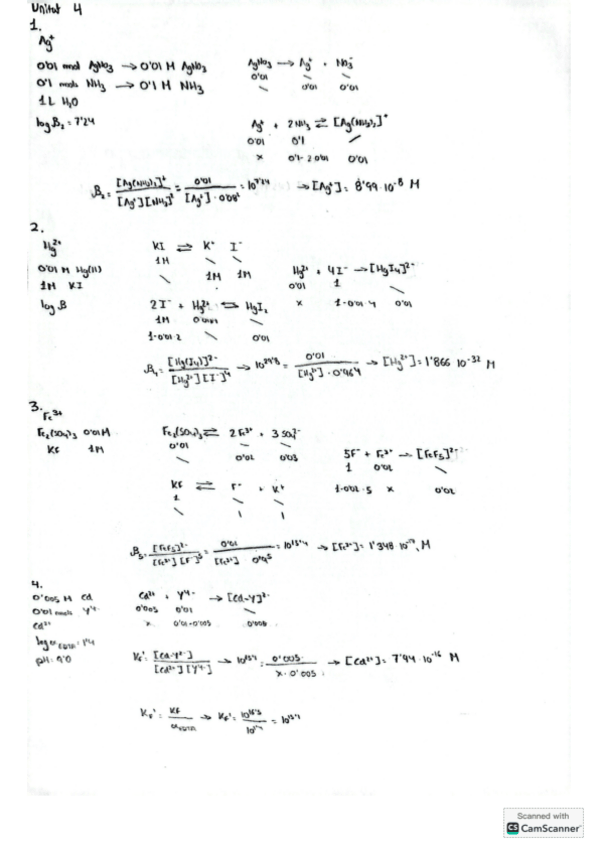 Unitat 4
1.
Ag⁺
0'01 mol AgNO₃ → 0'01 M AgNO₃
0'1 mols NH₃ → 0'1 M NH₃
1 L H₂O
log β₂ = 7'24
AgNO₃ → Ag⁺ + NO₃⁻
0'01 \ \
\ 0'01 0'01
Ag⁺ + 2NH₃ ⇌ [Ag(NH₃)₂]⁺
0'01 0'1 \
x 0'1-2·0'01 0'01
β₂ = [Ag(NH₃)₂]⁺ / [Ag⁺][NH₃]² = 0'01 / [Ag⁺]·0'08² = 10^7'24 → [Ag⁺] = 8'99·10⁻⁸ M
2.
Hg²⁺
0'01 M Hg(II)
1M KI
log β
KI ⇌ K⁺ I⁻
1M \ \
\ 1M 1M
2I⁻ + Hg²⁺ ⇌ HgI₂
1M \
1-0'01·2 0'01
Hg²⁺ + 4I⁻ → [HgI₄]²⁻
0'01 1 \
x 1-0'01·4 0'01
β₄ = [Hg(I₄)]²⁻ / [Hg²⁺][I⁻]⁴ → 10^29'8 = 0'01 / [Hg²⁺]·0'96⁴ → [Hg²⁺] = 1'866 10⁻³² M
3.
Fe³⁺
Fe₂(SO₄)₃ 0'01M
KF 1M
Fe₂(SO₄)₃ ⇌ 2Fe³⁺ + 3SO₄²⁻
0'01 \ \
\ 0'02 0'03
KF ⇌ F⁻ + K⁺
1 \ \
\ 1 1
5F⁻ + Fe³⁺ → [FeF₅]²⁻
1 0'02 \
x 0'02
[Fe³⁺] M
4.
0'005 M Cd
0'01 mols Y⁴⁻
Cd²⁺
pH = 9'0
Cd²⁺ + Y⁴⁻ → [Cd-Y]²⁻
0'005 0'01 \
x 0'01-0'005 0'005
Kf' = [Cd-Y²⁻] / [Cd²⁺][Y⁴⁻] → = 0'005 / x·0'005 → [Cd²⁺] = 7'94·10⁻¹⁶ M
Scanned with
CS CamScanner